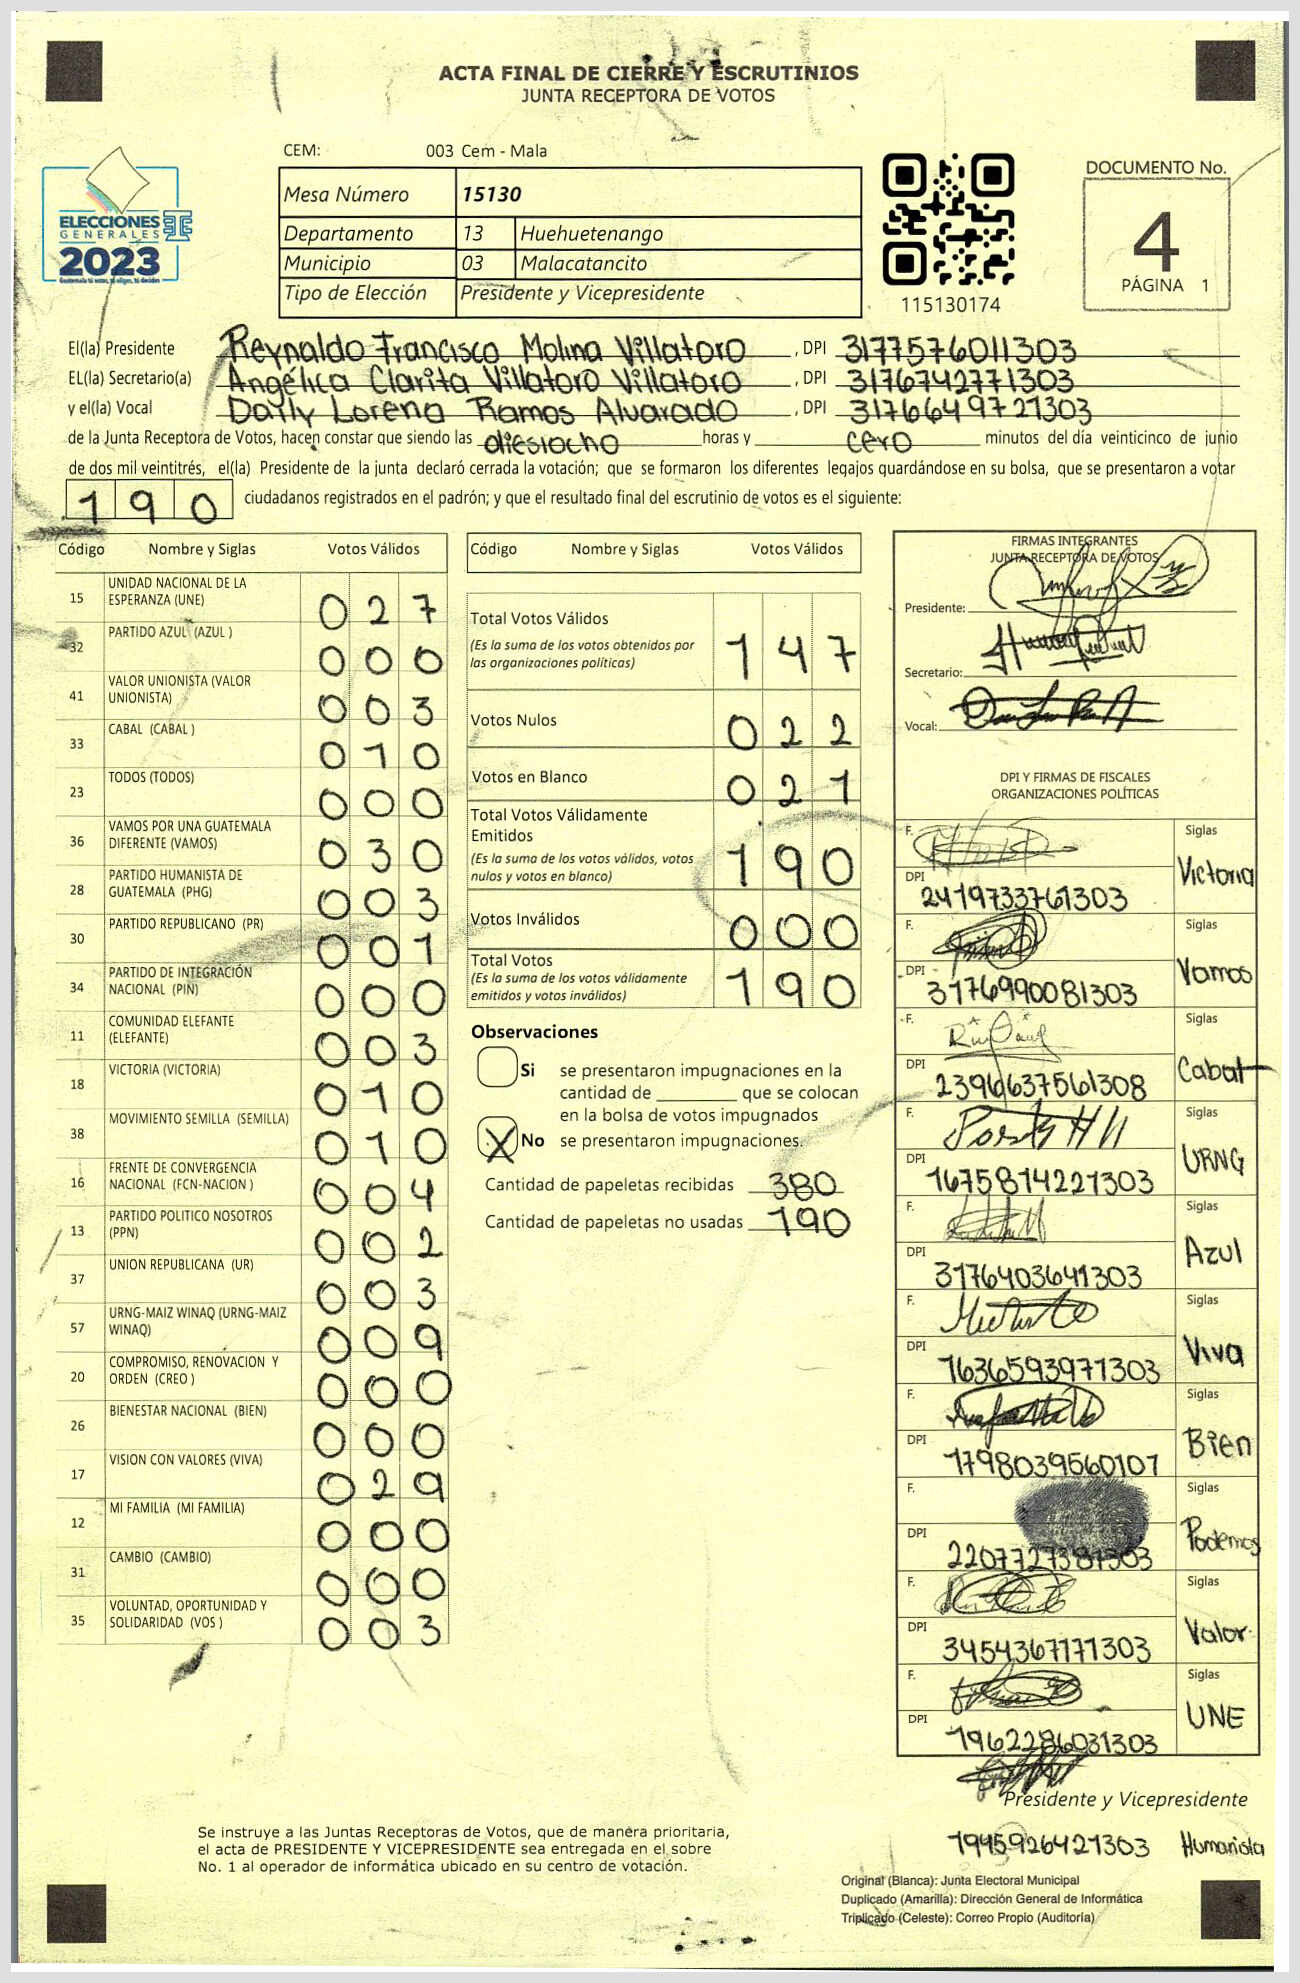 ACTA FINAL DE CIERRE Y ESCRUTINIOS
JUNTA RECEPTORA DE VOTOS
CEM: 003 Cem - Mala
Mesa Número 15130
Departamento 13 Huehuetenango
Municipio 03 Malacatancito
Tipo de Elección Presidente y Vicepresidente
ELECCIONES
GENERALES
2023
115130174
DOCUMENTO No.
4
PÁGINA 1
El(la) Presidente Reynaldo Francisco Molina Villatoro , DPI 3177576011303
EL(la) Secretario(a) Angélica Clarita Villatoro Villatoro , DPI 3176742771303
y el(la) Vocal Daily Lorena Ramos Alvarado , DPI 3176649721303
de la Junta Receptora de Votos, hacen constar que siendo las diesiocho horas y cero minutos del día veinticinco de junio
de dos mil veintitrés, el(la) Presidente de la junta declaró cerrada la votación; que se formaron los diferentes legajos quardándose en su bolsa, que se presentaron a votar
190 ciudadanos registrados en el padrón; y que el resultado final del escrutinio de votos es el siguiente:
Código Nombre y Siglas Votos Válidos
15 UNIDAD NACIONAL DE LA
ESPERANZA (UNE) 027
32 PARTIDO AZUL (AZUL ) 000
41 VALOR UNIONISTA (VALOR
UNIONISTA) 003
33 CABAL (CABAL ) 010
23 TODOS (TODOS) 000
36 VAMOS POR UNA GUATEMALA
DIFERENTE (VAMOS) 030
28 PARTIDO HUMANISTA DE
GUATEMALA (PHG) 003
30 PARTIDO REPUBLICANO (PR) 001
34 PARTIDO DE INTEGRACIÓN
NACIONAL (PIN) 000
11 COMUNIDAD ELEFANTE
(ELEFANTE) 003
18 VICTORIA (VICTORIA) 010
38 MOVIMIENTO SEMILLA (SEMILLA) 010
16 FRENTE DE CONVERGENCIA
NACIONAL (FCN-NACION ) 004
13 PARTIDO POLITICO NOSOTROS
(PPN) 002
37 UNION REPUBLICANA (UR) 003
57 URNG-MAIZ WINAQ (URNG-MAIZ
WINAQ) 009
20 COMPROMISO, RENOVACION Y
ORDEN (CREO ) 000
26 BIENESTAR NACIONAL (BIEN) 000
17 VISION CON VALORES (VIVA) 029
12 MI FAMILIA (MI FAMILIA) 000
31 CAMBIO (CAMBIO) 000
35 VOLUNTAD, OPORTUNIDAD Y
SOLIDARIDAD (VOS ) 003
Código Nombre y Siglas Votos Válidos
Total Votos Válidos
(Es la suma de los votos obtenidos por
las organizaciones políticas) 147
Votos Nulos 022
Votos en Blanco 021
Total Votos Válidamente
Emitidos
(Es la suma de los votos válidos, votos
nulos y votos en blanco) 190
Votos Inválidos 000
Total Votos
(Es la suma de los votos válidamente
emitidos y votos inválidos) 190
Observaciones
Si se presentaron impugnaciones en la
cantidad de ________ que se colocan
en la bolsa de votos impugnados
X No se presentaron impugnaciones.
Cantidad de papeletas recibidas 380
Cantidad de papeletas no usadas 190
FIRMAS INTEGRANTES
JUNTA RECEPTORA DE VOTOS
Presidente:
Secretario:
Vocal:
DPI Y FIRMAS DE FISCALES
ORGANIZACIONES POLÍTICAS
F. Siglas
Victoria
DPI 2419733761303
F. Siglas
Vamos
DPI 3176990081303
F. Siglas
Cabal
DPI 2396637561308
F. Siglas
URNG
DPI 1675814221303
F. Siglas
Azul
DPI 3176403641303
F. Siglas
Viva
DPI 1636593971303
F. Siglas
Bien
DPI 1798039560101
F. Siglas
Podemos
DPI
F. Siglas
Valor
DPI 3454367171303
F. Siglas
UNE
DPI 1962286031303
Presidente y Vicepresidente
1945926421303 Humanista
Se instruye a las Juntas Receptoras de Votos, que de manera prioritaria,
el acta de PRESIDENTE Y VICEPRESIDENTE sea entregada en el sobre
No. 1 al operador de informática ubicado en su centro de votación.
Original (Blanca): Junta Electoral Municipal
Duplicado (Amarilla): Dirección General de Informática
Triplicado (Celeste): Correo Propio (Auditoría)